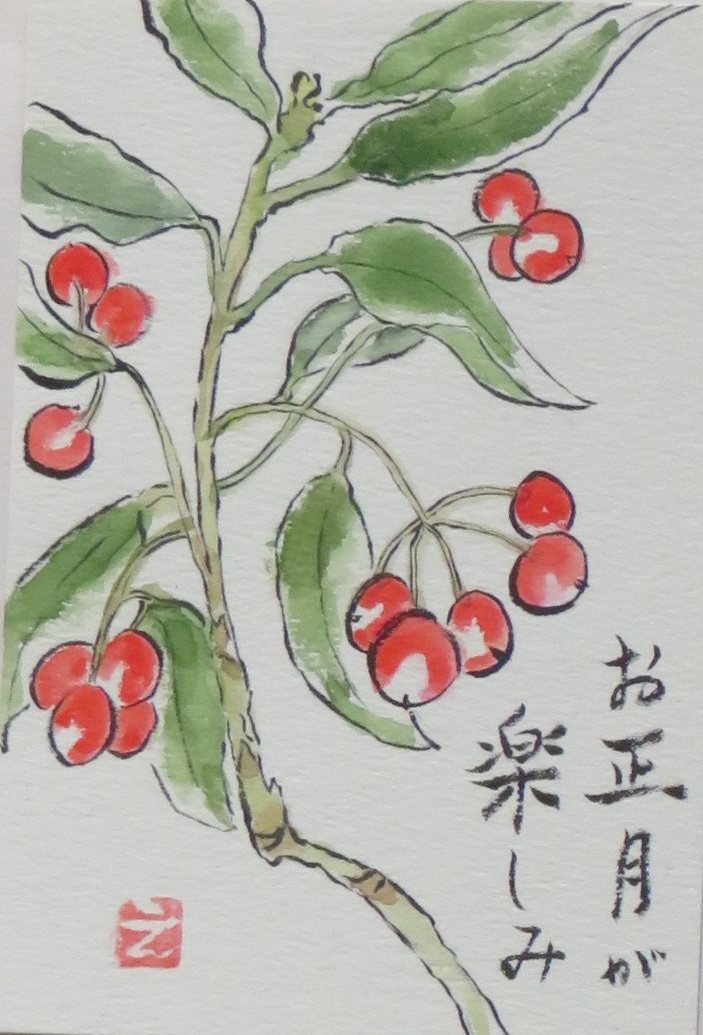 お正月が
楽しみ